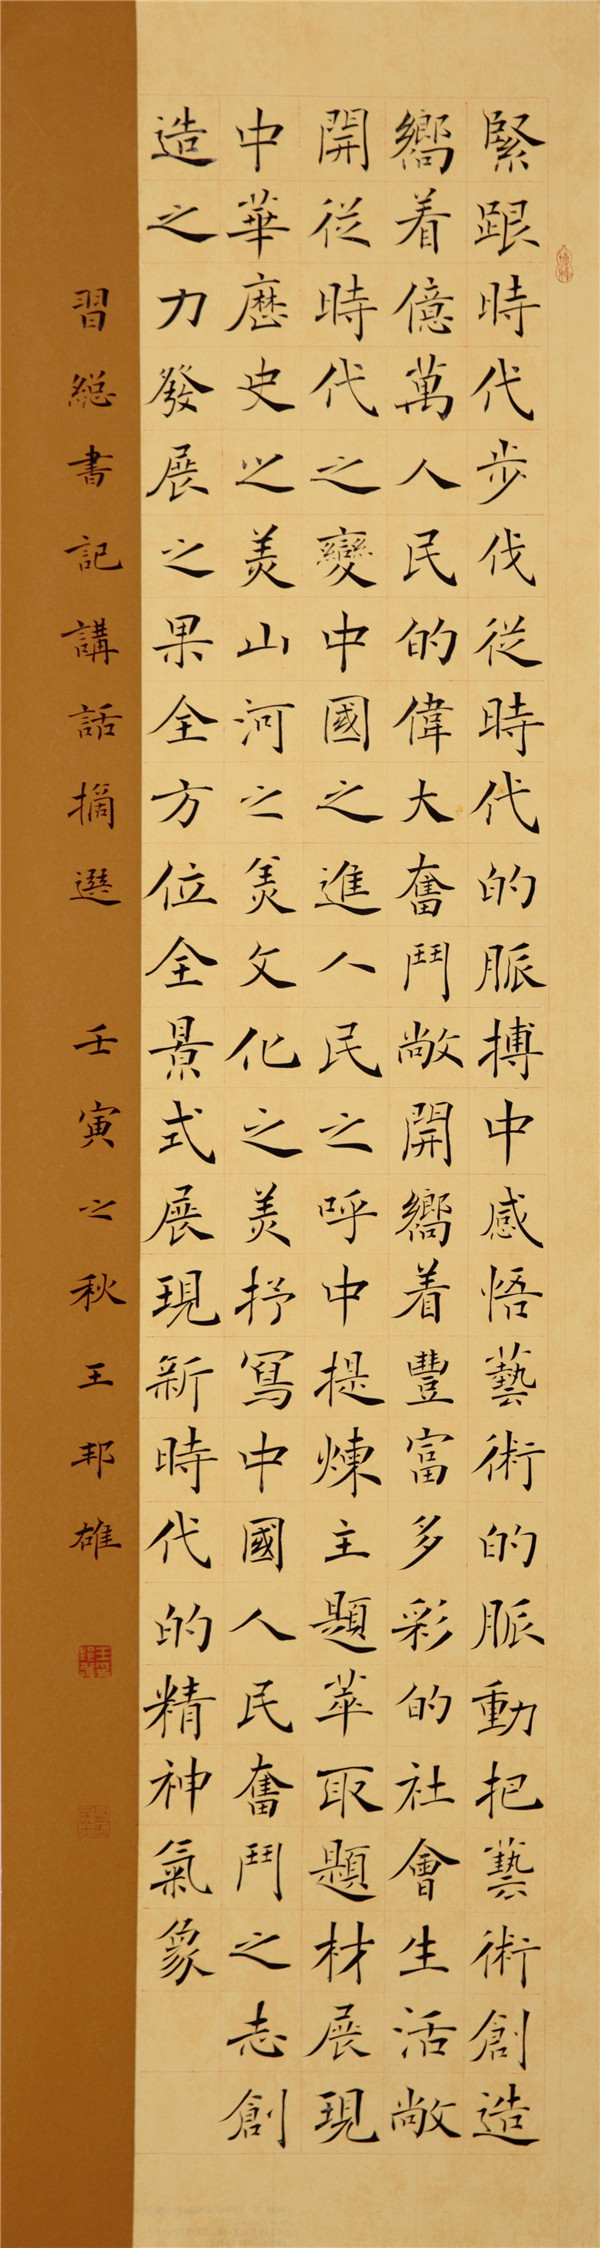 緊跟時代步伐從時代的脈搏中感悟藝術的脈動把藝術創造
嚮着億萬人民的偉大奮鬥敞開嚮着豐富多彩的社會生活敞
開從時代之變中國之進人民之呼中提煉主題萃取題材展現
中華歷史之美山河之美文化之美抒寫中國人民奮鬥之志創
造之力發展之果全方位全景式展現新時代的精神氣象
習總書記講話摘選 壬寅之秋王邦雄